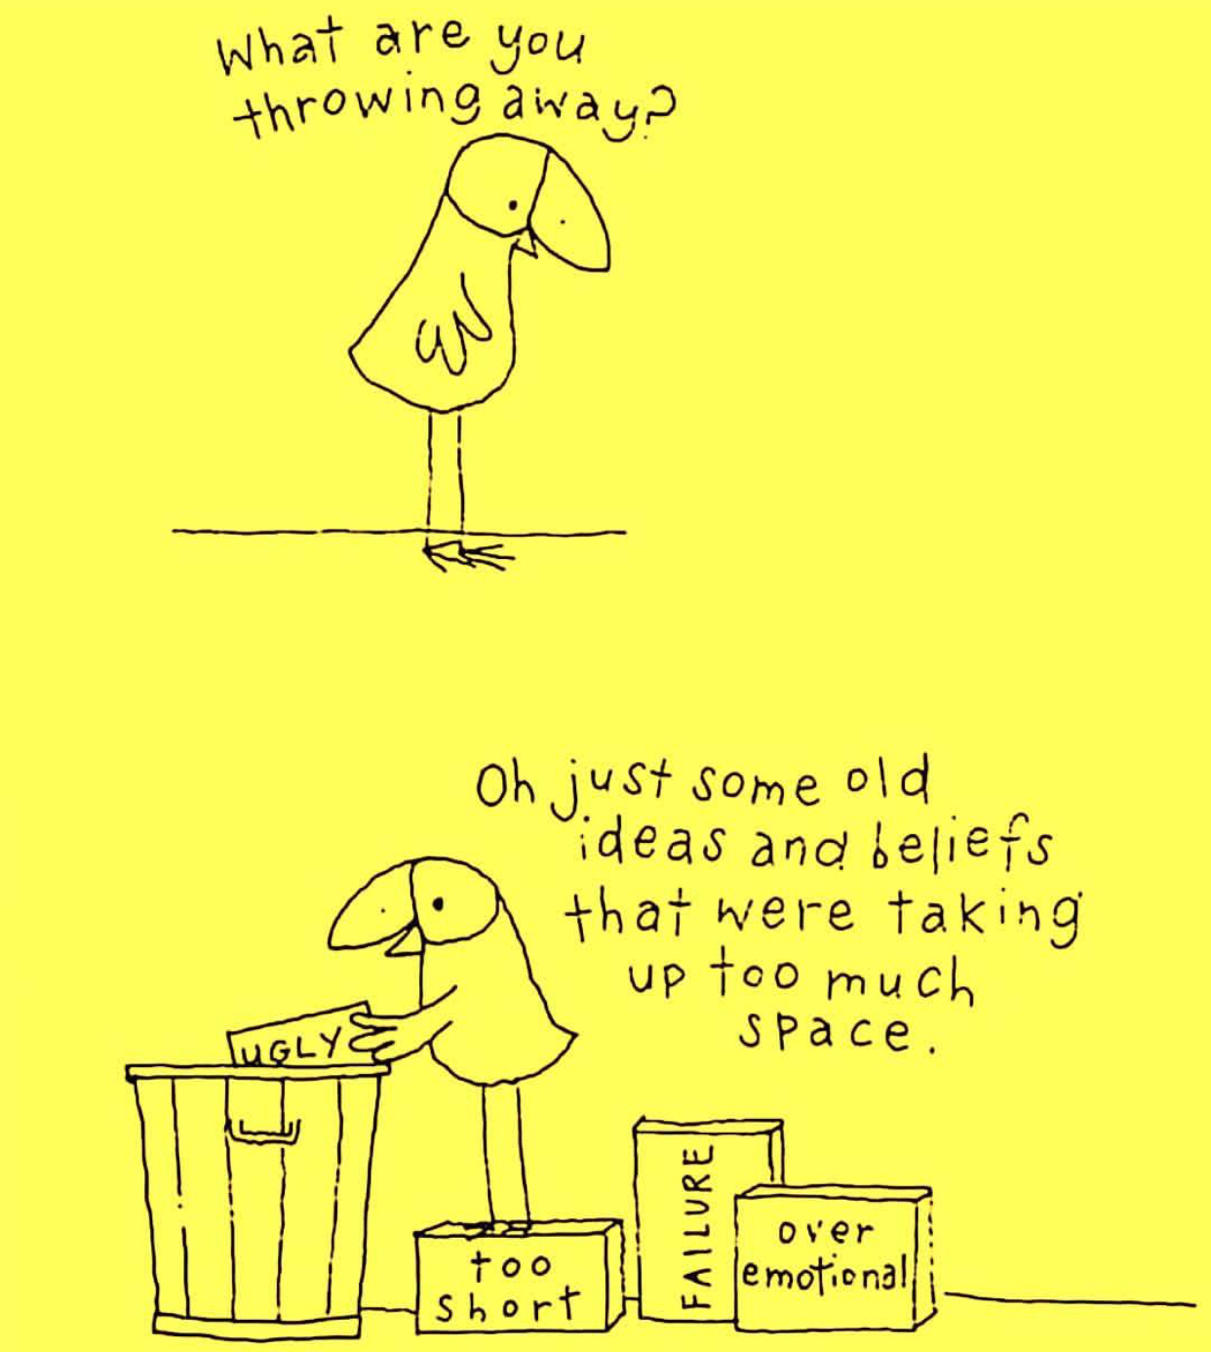 What are you
throwing away?
Oh just some old
ideas and beliefs
that were taking
up too much
space.
UGLY
too
short
FAILURE
over
emotional